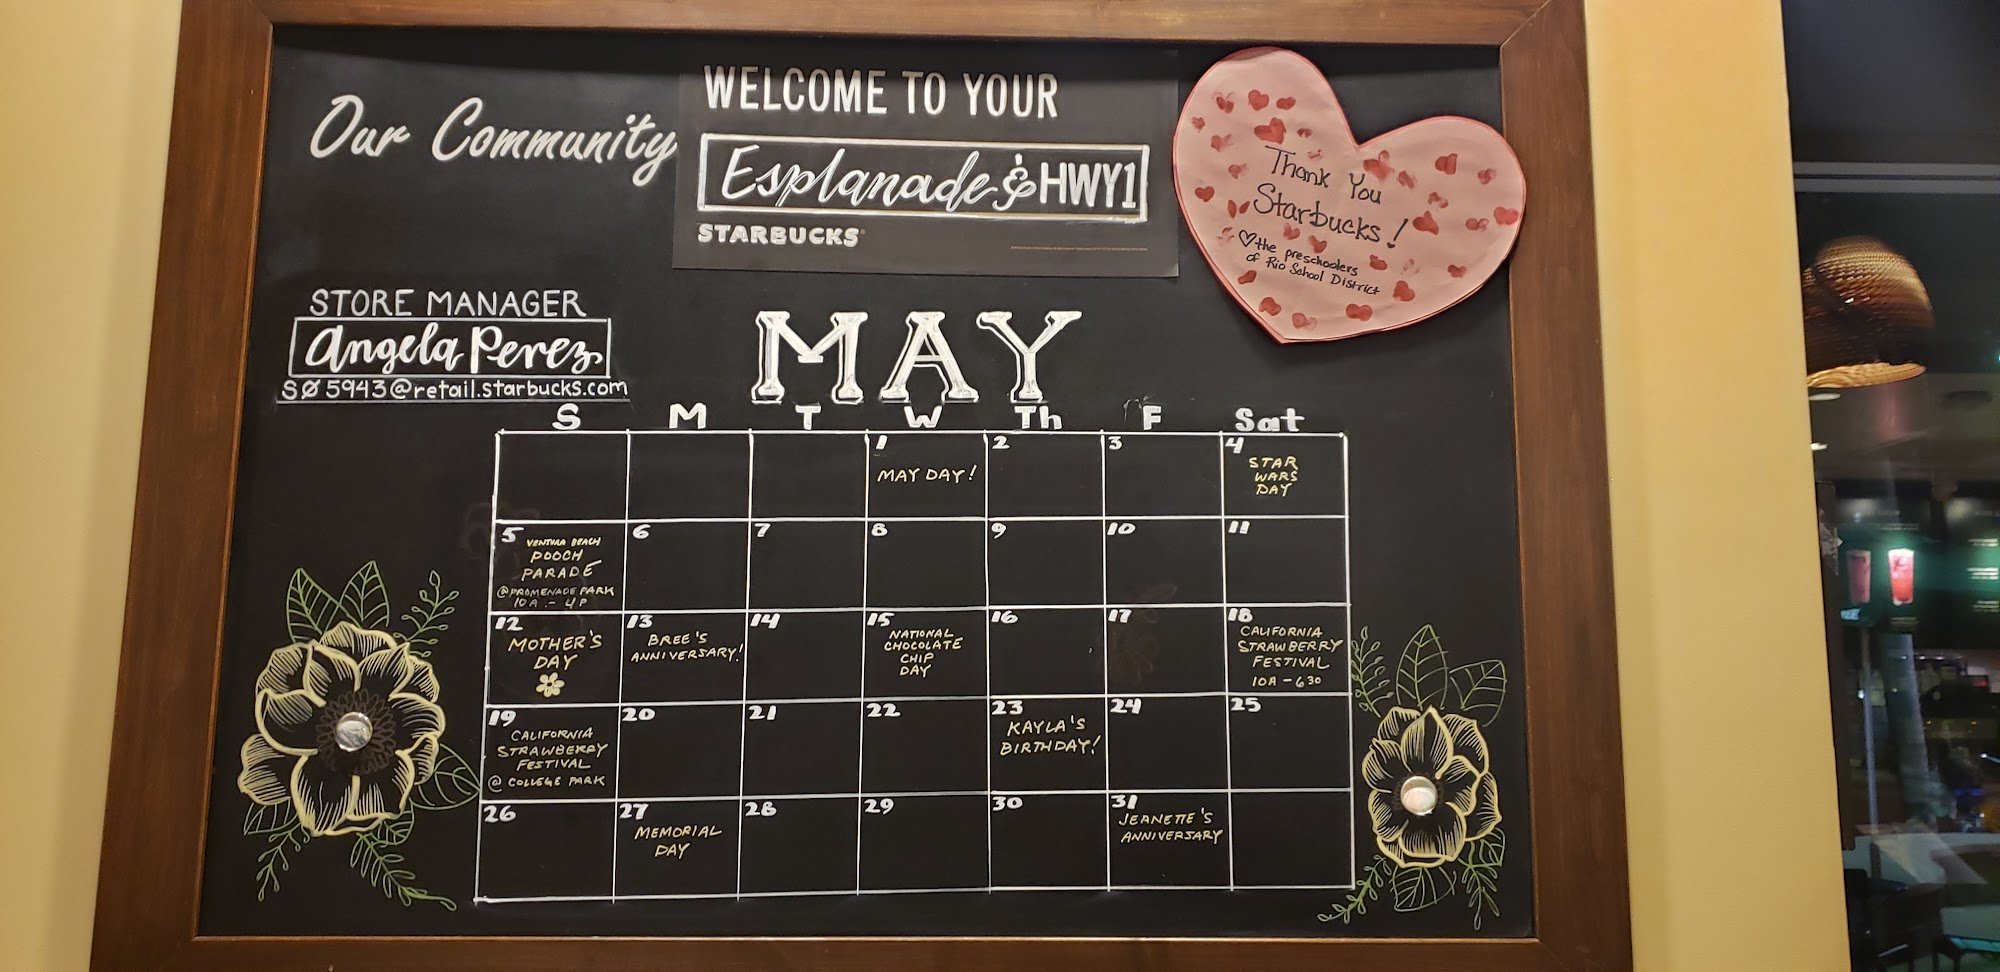 Our Community
WELCOME TO YOUR
Esplanade & HWY1
STARBUCKS
Thank You
Starbucks!
♡ the preschoolers
of Rio School District
STORE MANAGER
Angela Perez
SØ5943@retail.starbucks.com
MAY
S M T W Th F Sat
1 2 3 4
MAY DAY!
STAR
WARS
DAY
5 6 7 8 9 10 11
VENTURA BEACH
POOCH
PARADE
@PROMENADE PARK
10A - 4P
12 13 14 15 16 17 18
MOTHER'S
DAY
BREE'S
ANNIVERSARY!
NATIONAL
CHOCOLATE
CHIP
DAY
CALIFORNIA
STRAWBERRY
FESTIVAL
10A - 630
19 20 21 22 23 24 25
CALIFORNIA
STRAWBERRY
FESTIVAL
@ COLLEGE PARK
KAYLA'S
BIRTHDAY!
26 27 28 29 30 31
MEMORIAL
DAY
JEANETTE'S
ANNIVERSARY